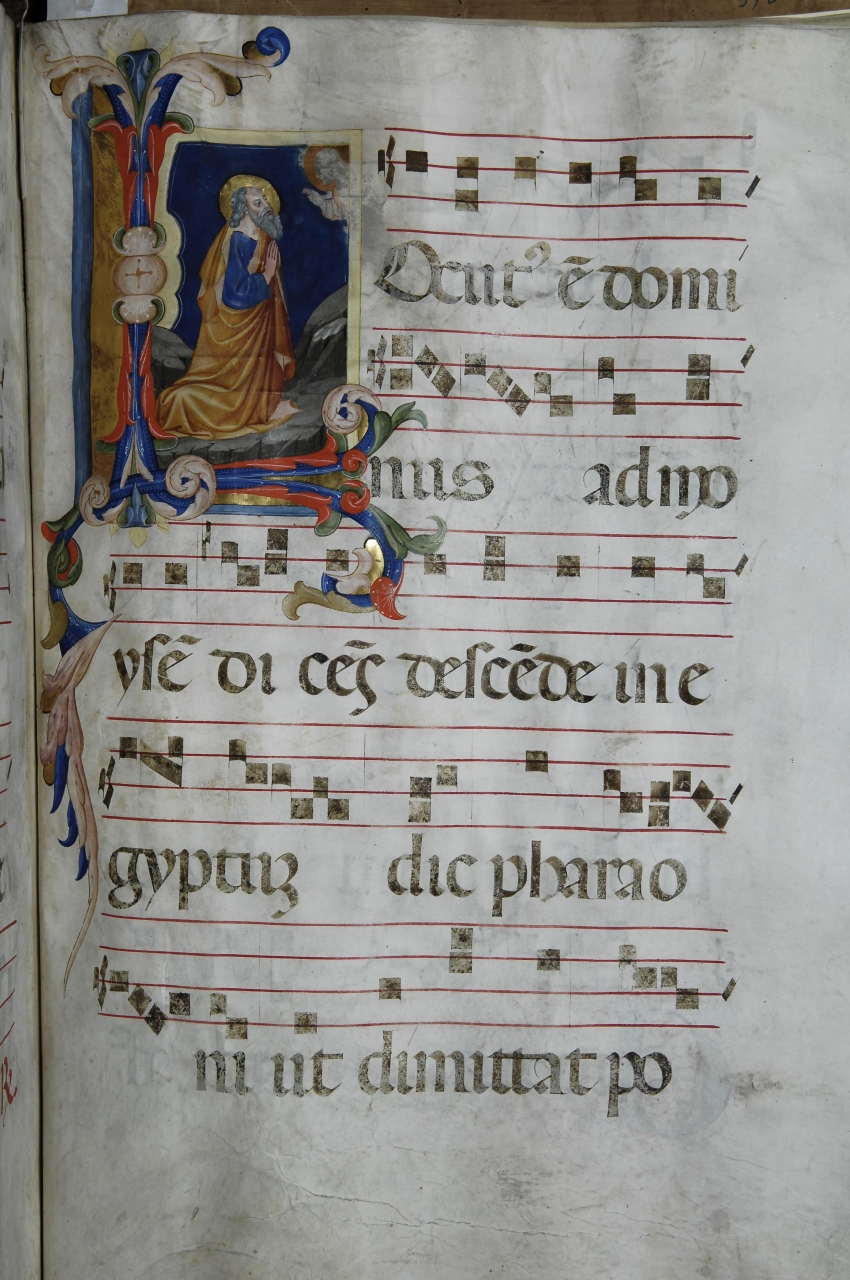 LOcutꝰ ē domi
nus ad mo
ysē di cēs descēde in e
gyptuꝫ dic pharao
ni ut dimittat po